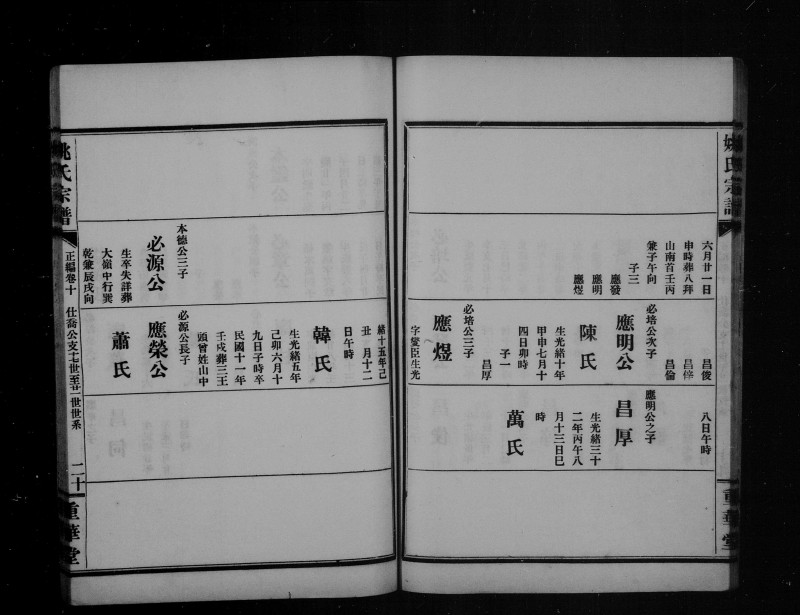 姚氏宗譜
六月廿一日
申時葬八拜
山南首壬丙
兼子午向
子三
應發
應明
應煜
昌俊
昌倫
必培公次子
應明公
陳氏
生光緒十年
甲申七月十
四日卯時
子一
昌厚
必培公三子
應煜
字燮臣生光
八日午時
應明公之子
昌厚
生光緒三十
二年丙午八
月十三日巳
時
萬氏
重華堂
本德公三子
必源公
生卒失詳葬
大嶺中行巽
乾兼辰戌向
緒十五年己
丑月十二
日午時
韓氏
生光緒五年
己卯六月十
九日子時卒
民國十一年
壬戌葬三王
頭曾姓山中
必源公長子
應榮公
蕭氏
姚氏宗譜
正編卷十
仕喬公支十七世至廿一世世系
二十
重華堂